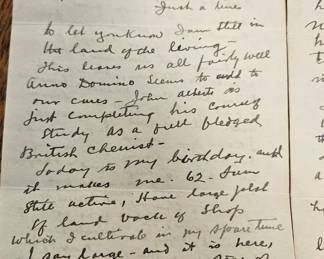 Just a line
to let you know I am still in
the land of the living -
This leaves us all fairly well
Anno Domino seems to add to
our cares - John
just completing his course of
study as a full fledged
British Chemist -
Today is my birthday. and
it makes me. 62 - I am
still active, Have large plot
of land back of Shop
which I cultivate in my spare time
I say Large - and it is here,